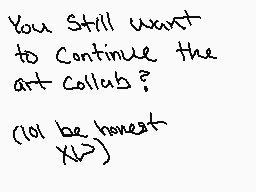 You still want
to continue the
art collab?
(lol be honest
XP)